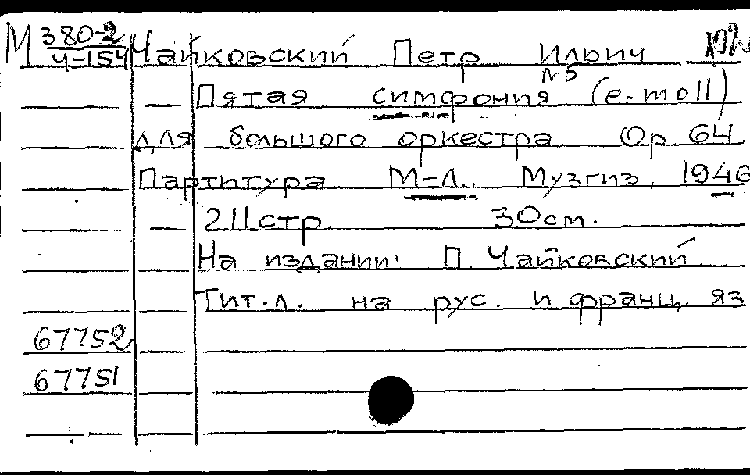 М 380-2
Ч-154
Чайковский Петр Ильич
№5
Пятая симфония (e-moll)
для большого оркестра Ор 64
Партитура М-Л. Музгиз, 1946
211стр 30см.
На издании: П. Чайковский
Тит.л. на рус. и франц. яз
67752
67751